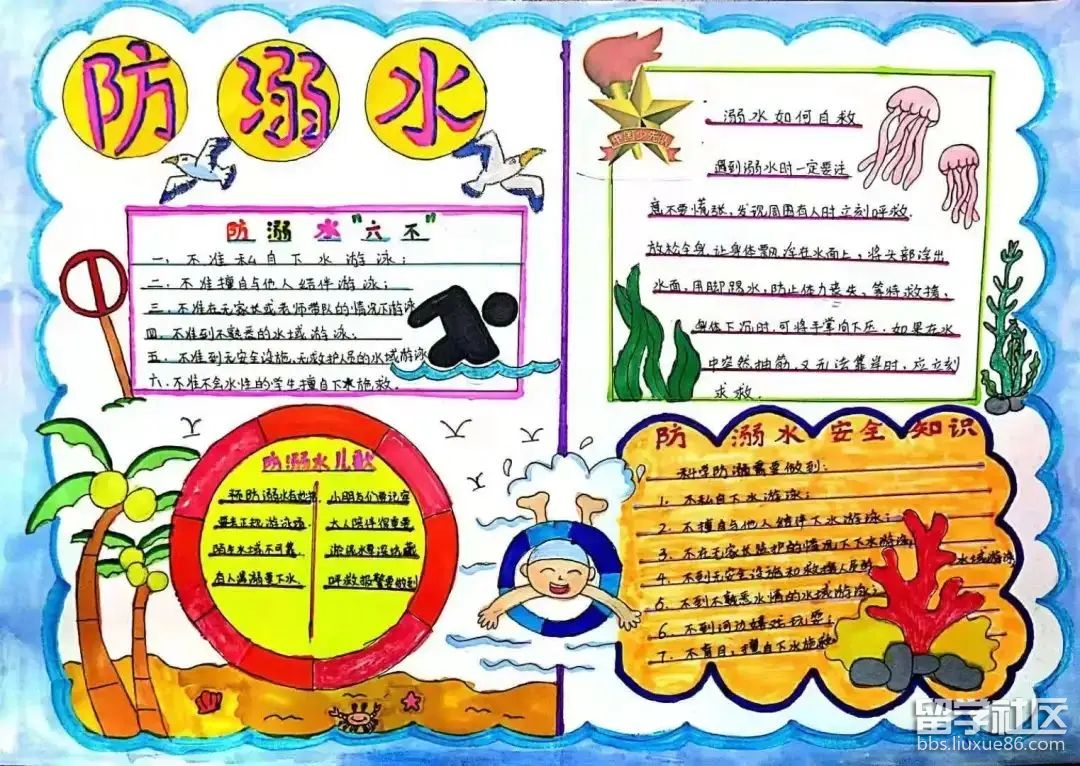 防溺水
防溺水“六不”
一、不准私自下水游泳；
二、不准擅自与他人结伴游泳；
三、不准在无家长或老师带队的情况下游泳
四、不准到不熟悉的水域游泳；
五、不准到无安全设施、无救护人员的水域游泳
六、不准不会水性的学生擅自下水施救.
中国少先队
溺水如何自救
遇到溺水时一定要注
意不要慌张，发现周围有人时立刻呼救.
放松全身，让身体飘浮在水面上，将头部浮出
水面，用脚踢水，防止体力丧失，等待救援，
身体下沉时，可将手掌向下压，如果在水
中突然抽筋，又无法靠岸时，应立刻
求救.
防溺水儿歌
预防溺水有
要去正规游泳
陌生水域不可靠
有人遇溺要下水、
小朋友们要记牢
大人陪伴很重要
呼救报警要做到
防溺水安全知识
科学防溺需要做到：
1、不私自下水游泳；
2、不擅自与他人结伴下水游泳；
3、不在无家长监护的情况下下水游泳
4、不到无安全设施和救援人员的水域游泳
5、不到不熟悉水情的水域游泳；
6、不到河边嬉戏玩耍；
7、不盲目，擅自下水施救
留学社区
bbs.liuxue86.com